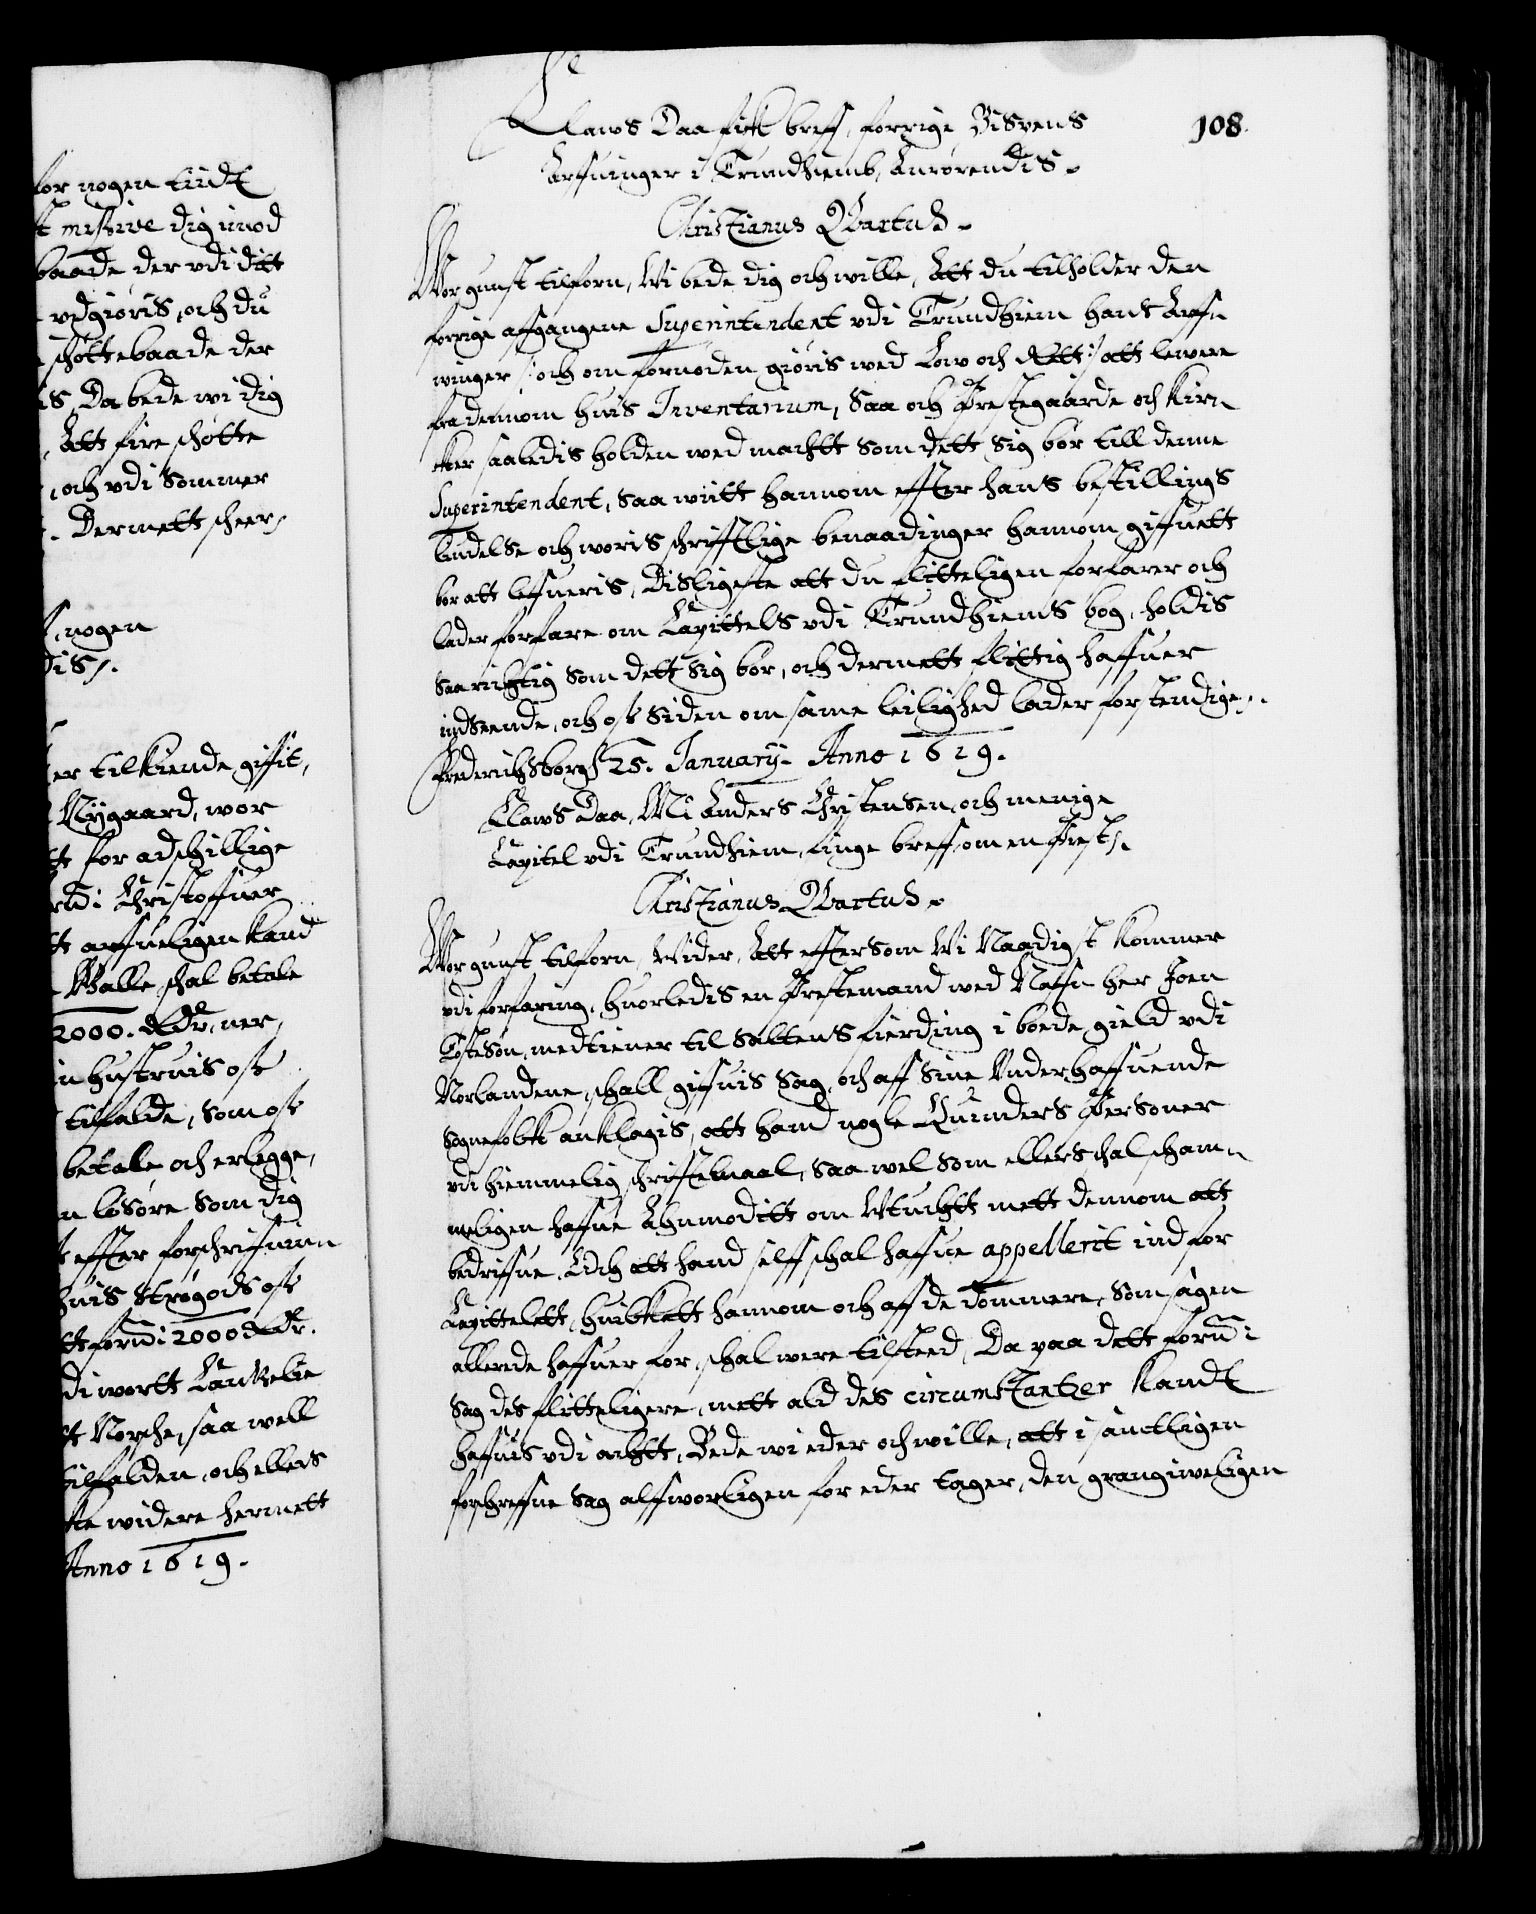 for nogen tiidt
missive dig imod
baade der vdi ditt
vdgiøris, och du
schøttebaade der
Da bede wi dig
Att fire schøtte
och vdi Sommer
Dermett scheer
nogen
er tilkiende giffit,
Nygaard, wor
for adschillige
Christoffuer
arfueligen kand
Walle, schal betale
2000. dlr, ner,
hustruis oss
tilfalde, som oss
betale och erlegge,
løsøre som dig
effter forschrifning
huis strøgods oss
2000 dlr.
di wortt Cancelie
Norche, saa well
tilfalden, och ellers
widere hermett
Anno 1619.
108.
Claws Daa fik breff, forrige Bispens
Arffuinger i Trundhiemb, Anrørendis.
Christianus Qvartus.
Wor gunst tilforn, Wi bede dig och wille, Att du tilholder den
forrige affgangene Superintendent vdi Trundhiem hans Arff-
winger /: och om fornøden giøris wed Low och Rett :/ att lewere
fra dennom huis Inventarium, saa och Prestegaarde och Kir-
cker saaledis holden wed machtt som dett sig bør till denne
Superintendent, saa wiitt hannom effter hans bestillings
liudelse och woris schrifftlige benaadinger hannom giffuett
bør att leffueris, Disligeste att du flitteligen forfarer och
lader forfare om Capittels vdi Trundhiems bog, holdis
saa richtig som dett sig bør, och dermett flittig haffuer
indseende, och oss siden om same leilighed lader forstendige.
Frederichsborg 25. January. Anno 1619.
Claws Daa, M: Anders Christensen, och menige
Capitel vdi Trundhiem, finge breff, om en Prest.
Christianus Qvartus.
Wor gunst tilforn, Wider, Att effter som Wi Naadigst kommer
vdi forfaring, huorledis en Prestemand wed Naffn her Joen
medtiener til Saltens fierding i boede gield vdi
Norlandene, schall giffuis sag, och aff sine Vnderhaffuende
Sognefolck anklagis, att hand nogle Quinders Personer
vdi hiemmelig schrifftemaal, saa wel som ellers schal scham-
meligen haffue Ahnmoditt om Vtuchtt mett dennom att
bedriffue. Och att hand self schal haffue appellerit ind for
Capittelett, huilckett hannom och aff de dommere, som sagen
allerede haffuer for, schal were tilsteed, Da paa dett forn:
Sag des flitteligere, mett ald des circumstantzer kandt
haffuis vdi achtt, Bede wi eder och wille, att i samtligen
forschreffne Sag alfforligen for eder tager, den grangiueligen